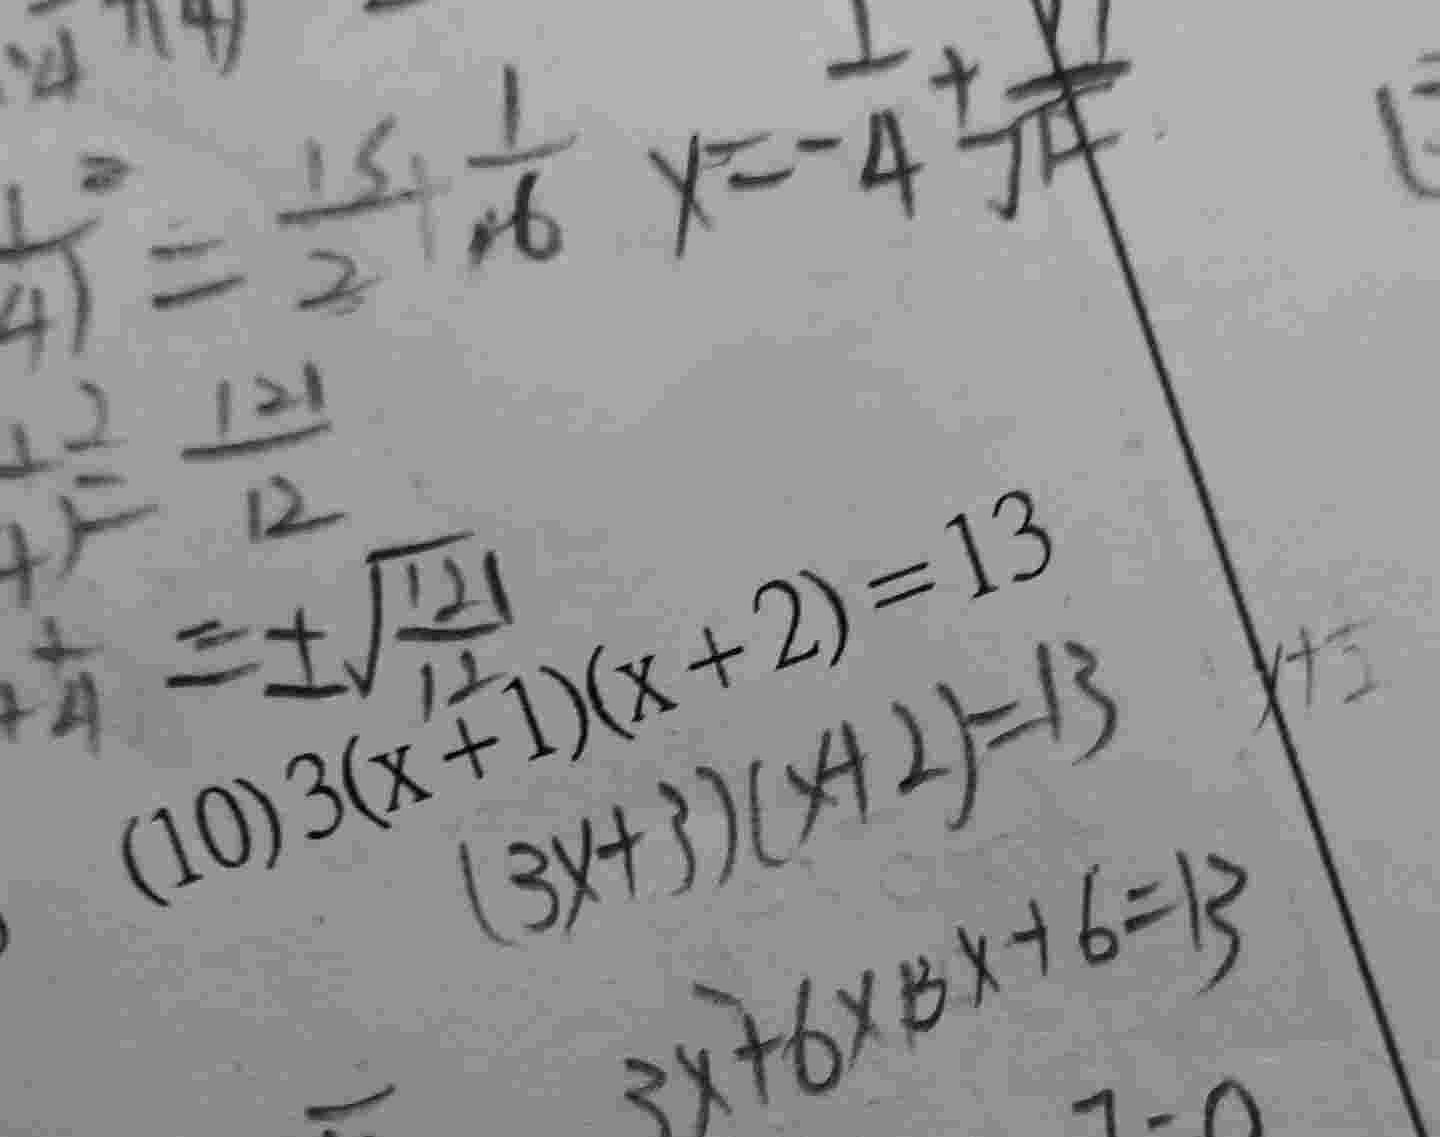 4 7(4)
1/4)² = 15/2 + 1/16 x = -1/4 +
1/4)² = 121/12
+ 1/4 = ±√(121/12)
(10) 3(x+1)(x+2)=13
(3x+3)(x+2)=13
3x²+6x+3x+6=13
7=0